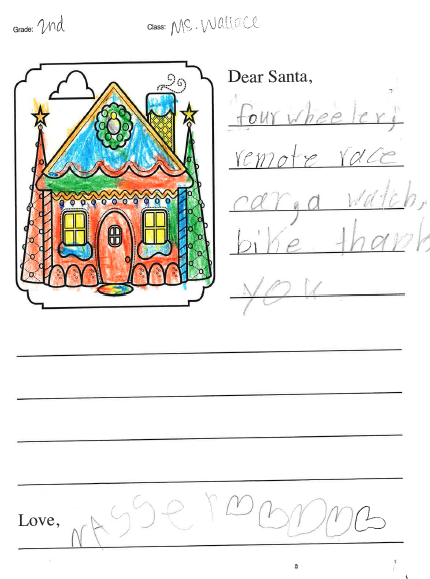 Grade: 2nd Class: Ms. Wallace
Dear Santa,
four wheeler,
remote race
car, a watch,
bike thank
you
Love, NASSer